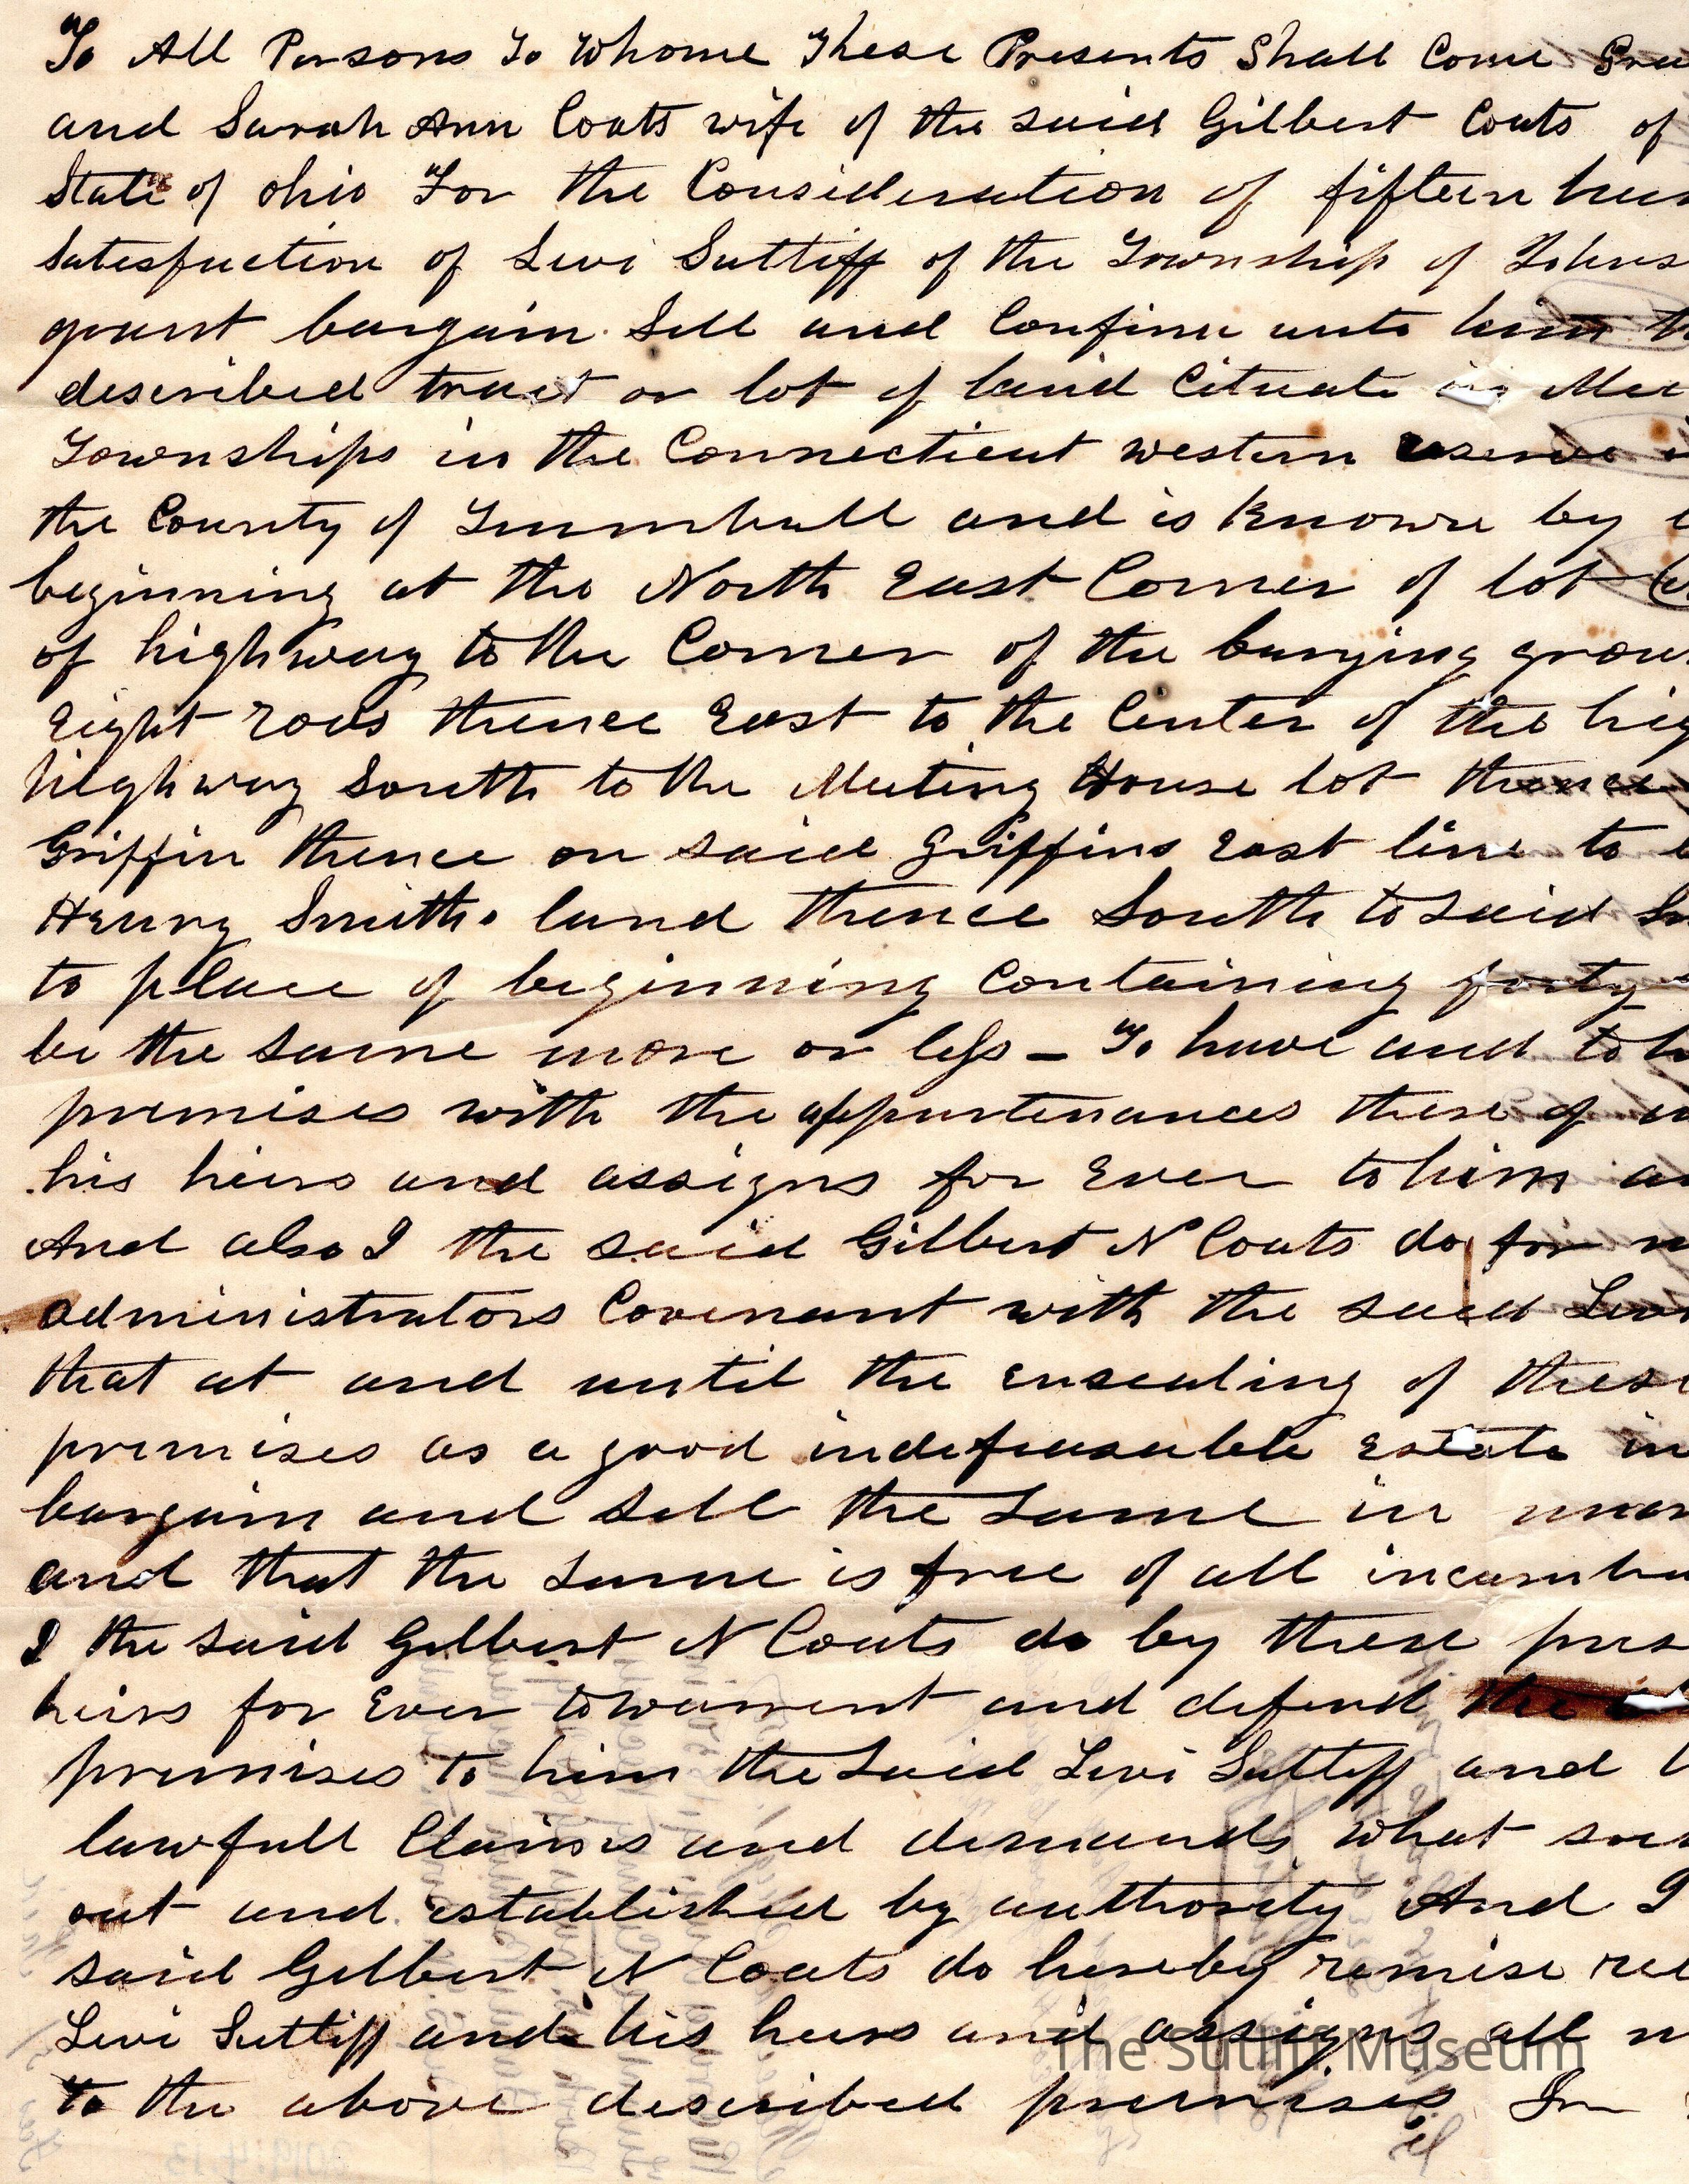 To All Persons To Whome These Presents Shall Come Gree
and Sarah Ann Coats wife of the said Gilbert Coats of
State of ohio For the Consideration of fifteen hun
Satesfaction of Levi Suttiff of the Township of Johns
grant bargain Sell and Confirm unto him th
described tract or lot of land Cituate in Mec
Townships in the Connecticut western reserve i
the County of Trumbull and is Knowne by
beginning at the North East Corner of lot
of highway to the Corner of the burying grou
Eight rods thence East to the Center of the hig
heighway South to the Meeting House lot thence
Griffin thence on said Griffins East line to
Henry Smiths land thence South to said Sm
to place of beginning Containing forty
be the same more or less – To have and to h
premises with the appurtenances there of u
his heirs and assigns for Ever to him an
And also I the said Gilbert N Coats do for m
administrators Covenant with the said Levi
that at and until the ensealing of these
premises as a good indefeasable Estate in
bargain and sell the same in man
and that the same is free of all incumbra
I the said Gilbert N Coats do by these pres
heirs for Ever to warrent and defend the
premises to him the said Levi Suttiff and
lawfull Claims and demands what soe
out and established by authority And I
said Gilbert N Coats do hereby remise rel
Levi Suttiff and his heirs and assigns all m
to the above described premises In
The Sutliff Museum